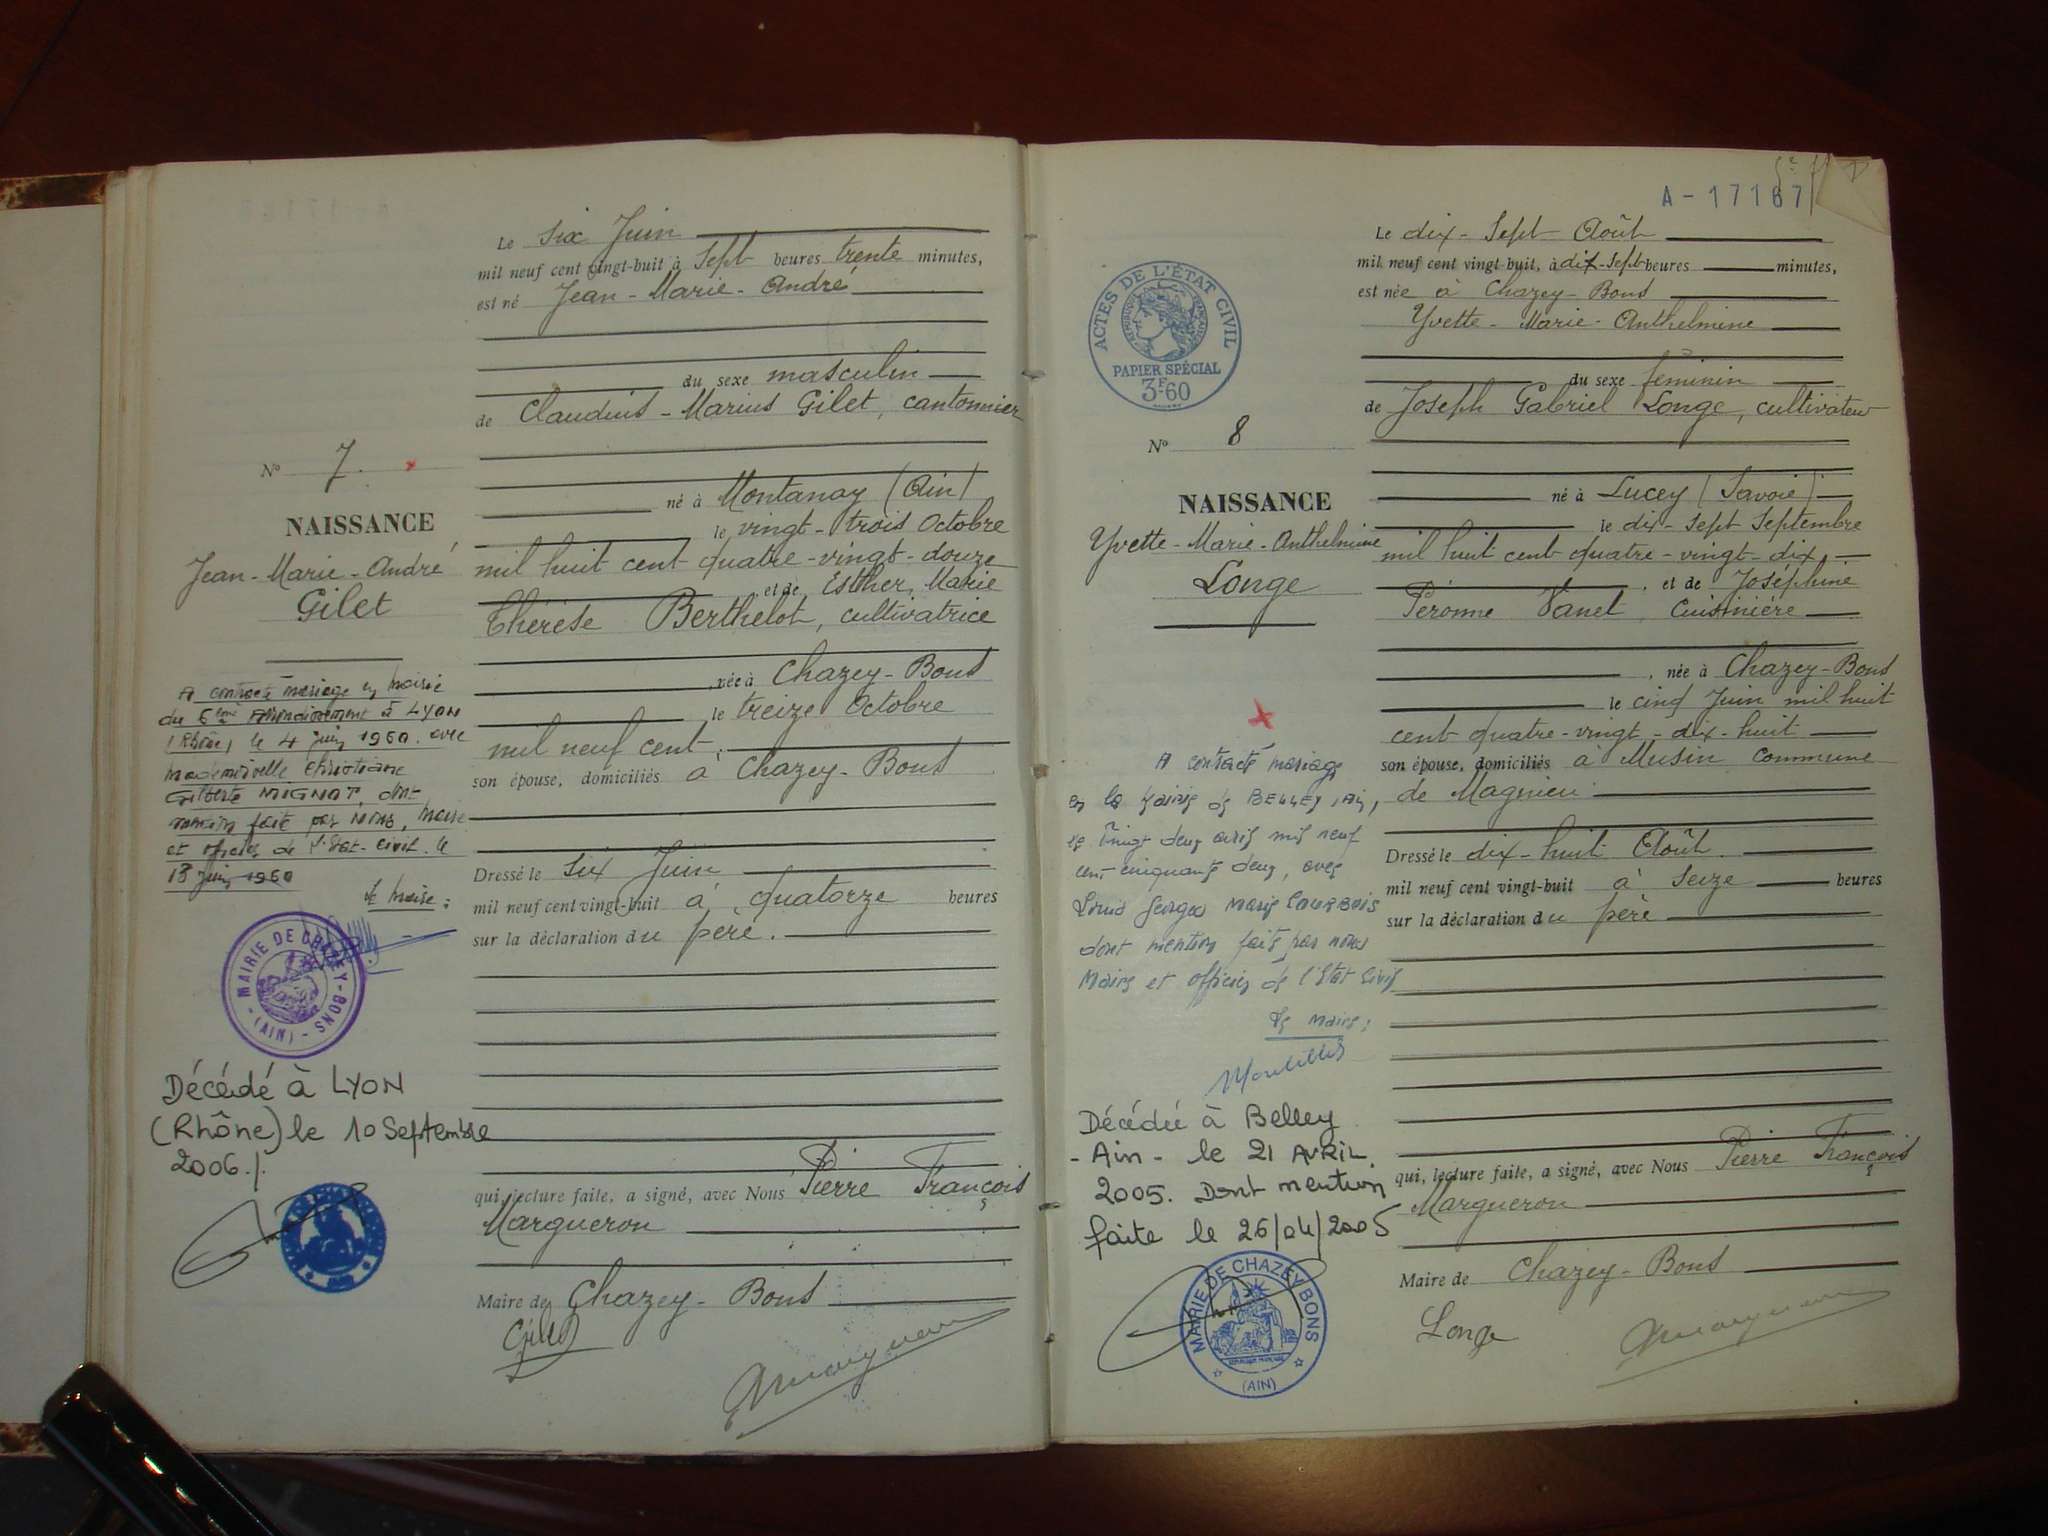 Le six Juin
mil neuf cent vingt-huit à Sept heures trente minutes,
est né Jean-Marie-André
du sexe masculin
de Claudius-Marius Gilet, cantonnier
né à Montanay (Ain)
le vingt-trois Octobre
mil huit cent quatre-vingt-douze
et de Esther, Marie
Thérèse Berthelot, cultivatrice
née à Chazey-Bons
le treize Octobre
mil neuf cent,
son épouse, domiciliés à Chazey-Bons
Dressé le six Juin
mil neuf cent vingt-huit à quatorze heures
sur la déclaration du père.
qui, lecture faite, a signé, avec Nous Pierre François
Margueron
Maire de Chazey-Bons
Gilet
N° 7.
NAISSANCE
Jean-Marie-André
Gilet
A contracté mariage en mairie
du 6ème Arrondissement à LYON
(Rhône) le 4 juin 1960. avec
Mademoiselle Christiane
Gilberte MIGNOT, dont
mention faite par NOUS, Maire
et officier de l'Etat-Civil. le
13 juin 1960
Le Maire:
MAIRIE DE CHAZEY-BONS
(AIN)
Décédé à LYON
(Rhône) le 10 Septembre
2006./.
A-17167
Le dix-Sept Août
mil neuf cent vingt huit, à dix-Sept heures minutes,
est née à Chazey-Bons
Yvette-Marie-Anthelmine
du sexe féminin
de Joseph Gabriel Longe, cultivateur
né à Lucey (Savoie)
le dix-Sept Septembre
mil huit cent quatre-vingt-dix,
et de Joséphine
Péronne Vanel Cuisinière
, née à Chazey-Bons
le cinq Juin mil huit
cent quatre-vingt-dix-huit
son épouse, domiciliés à Musin Commune
de Magnieu
Dressé le dix-huit Août
mil neuf cent vingt-huit à Seize heures
sur la déclaration du père
qui, lecture faite, a signé, avec Nous Pierre François
Margueron
Maire de Chazey-Bons
Longe
ACTES DE L'ÉTAT CIVIL
PAPIER SPÉCIAL
3F.60
N° 8
NAISSANCE
Yvette-Marie-Anthelmine
Longe
A contracté mariage
en la Mairie de BELLEY (Ain),
le Vingt deux avril mil neuf
cent cinquante deux, avec
Louis Georges Marie COURBOIS
dont mention faite par nous
Maire et officier de l'Etat Civil
Le Maire:
Décédée à Belley
-Ain- le 21 AVRIL
2005. Dont mention
faite le 26/04/2005
MAIRIE DE CHAZEY BONS
(AIN)